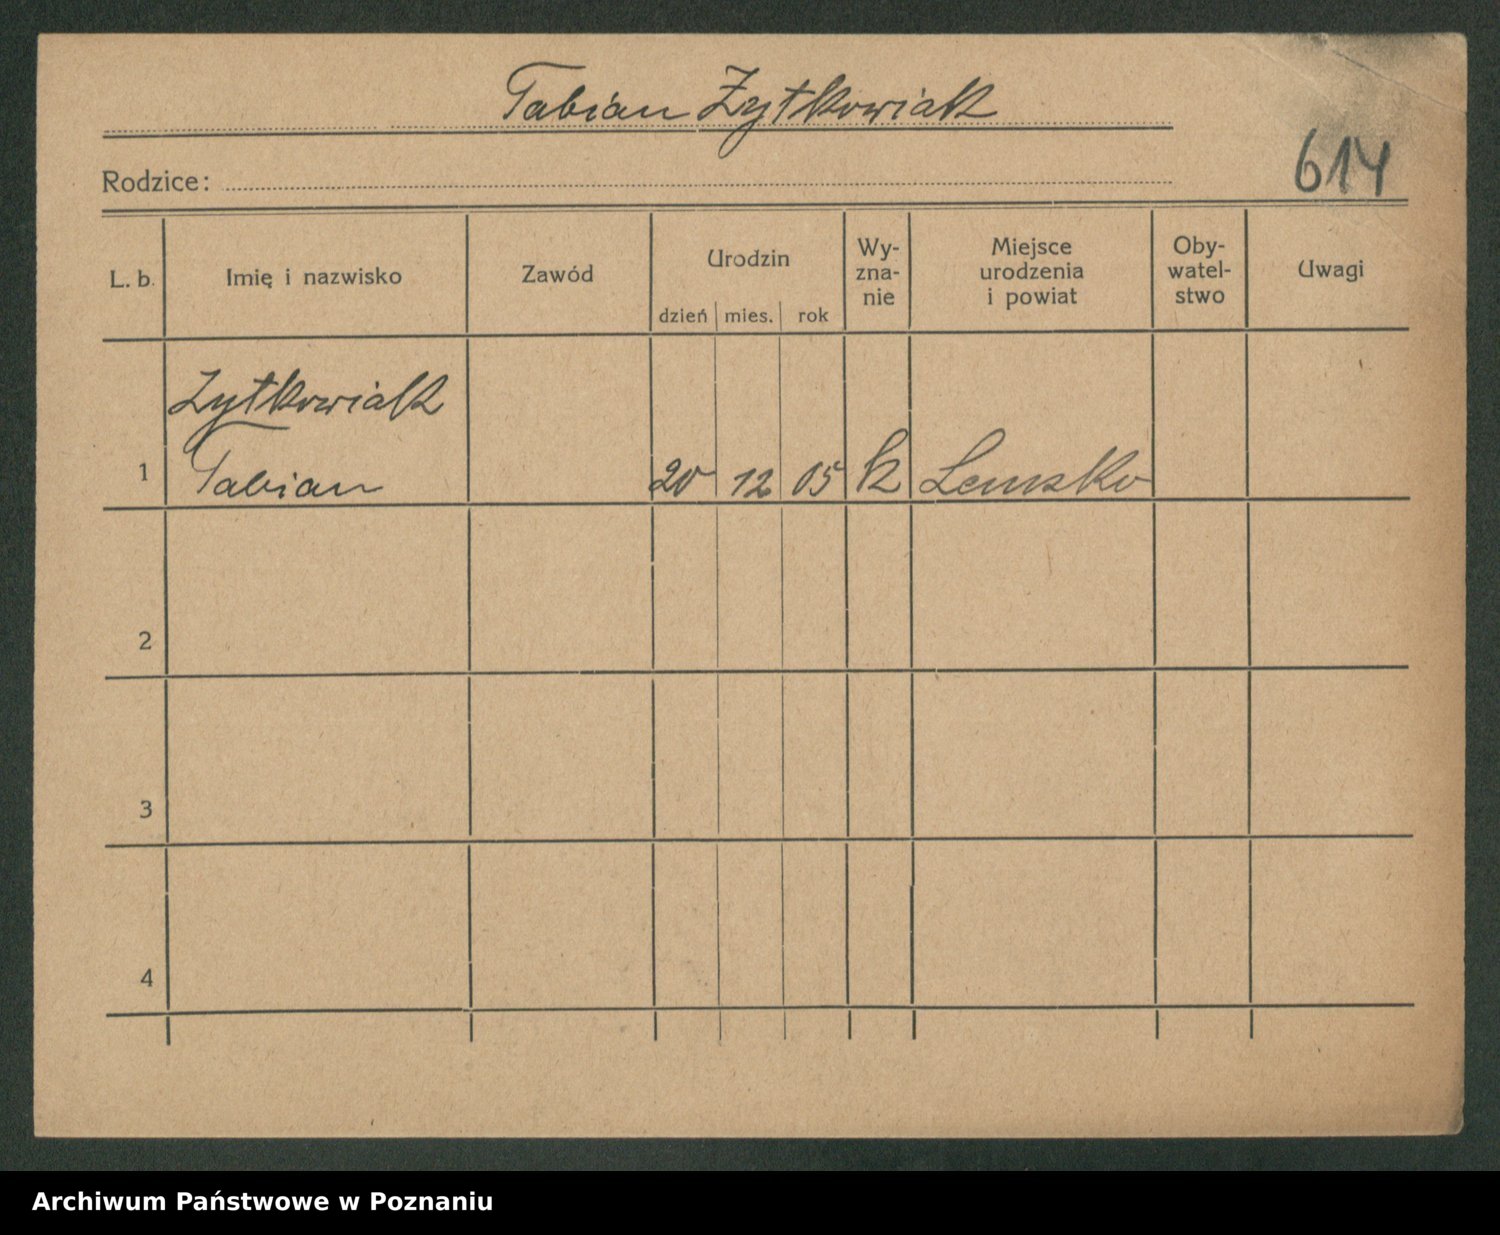 Fabian Żytkowiak
614
Rodzice:
L. b. Imię i nazwisko Zawód Urodzin dzień mies. rok Wyzna-nie Miejsce urodzenia i powiat Oby-watel-stwo Uwagi
Żytkowiak
1 Fabian 20 12 05 k
2
3
4
Archiwum Państwowe w Poznaniu